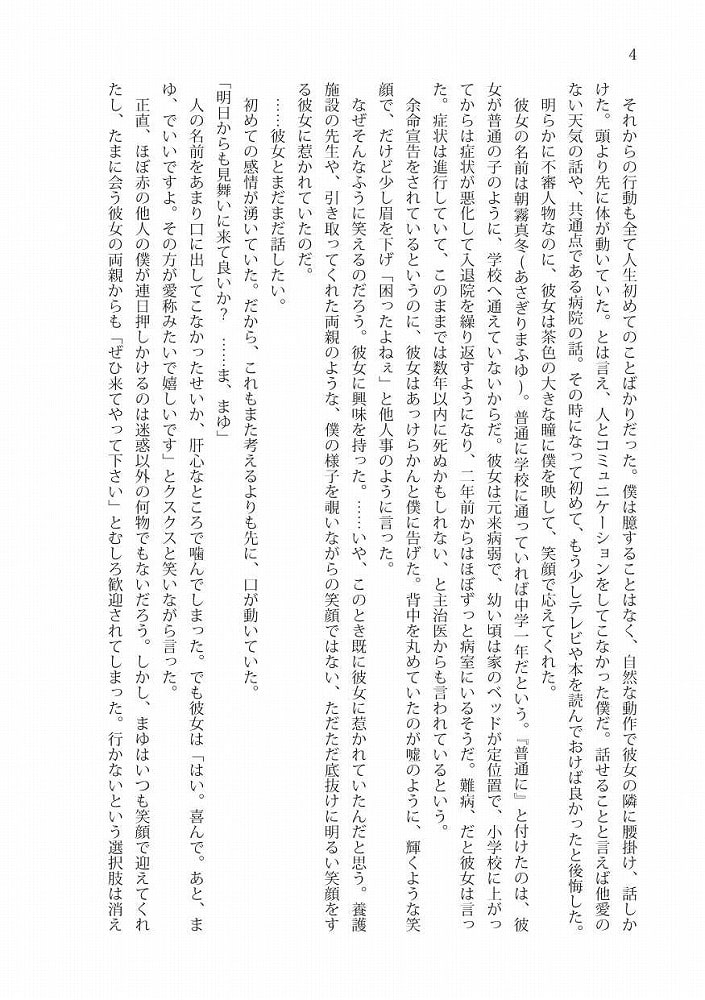 4
　それからの行動も全て人生初めてのことばかりだった。僕は臆することはなく、自然な動作で彼女の隣に腰掛け、話しか
けた。頭より先に体が動いていた。とは言え、人とコミュニケーションをしてこなかった僕だ。話せることと言えば他愛の
ない天気の話や、共通点である病院の話。その時になって初めて、もう少しテレビや本を読んでおけば良かったと後悔した。
　明らかに不審人物なのに、彼女は茶色の大きな瞳に僕を映して、笑顔で応えてくれた。
　彼女の名前は朝霧真冬(あさぎりまふゆ)。普通に学校に通っていれば中学一年だという。『普通に』と付けたのは、彼
女が普通の子のように、学校へ通えていないからだ。彼女は元来病弱で、幼い頃は家のベッドが定位置で、小学校に上がっ
てからは症状が悪化して入退院を繰り返すようになり、二年前からはほぼずっと病室にいるそうだ。難病、だと彼女は言っ
た。症状は進行していて、このままでは数年以内に死ぬかもしれない、と主治医からも言われているという。
　余命宣告をされているというのに、彼女はあっけらかんと僕に告げた。背中を丸めていたのが嘘のように、輝くような笑
顔で、だけど少し眉を下げ「困ったよねぇ」と他人事のように言った。
　なぜそんなふうに笑えるのだろう。彼女に興味を持った。……いや、このとき既に彼女に惹かれていたんだと思う。養護
施設の先生や、引き取ってくれた両親のような、僕の様子を覗いながらの笑顔ではない、ただただ底抜けに明るい笑顔をす
る彼女に惹かれていたのだ。
　……彼女とまだまだ話したい。
　初めての感情が湧いていた。だから、これもまた考えるよりも先に、口が動いていた。
「明日からも見舞いに来て良いか？　……ま、まゆ」
　人の名前をあまり口に出してこなかったせいか、肝心なところで噛んでしまった。でも彼女は「はい。喜んで。あと、ま
ゆ、でいいですよ。その方が愛称みたいで嬉しいです」とクスクスと笑いながら言った。
　正直、ほぼ赤の他人の僕が連日押しかけるのは迷惑以外の何物でもないだろう。しかし、まゆはいつも笑顔で迎えてくれ
たし、たまに会う彼女の両親からも「ぜひ来てやって下さい」とむしろ歓迎されてしまった。行かないという選択肢は消え